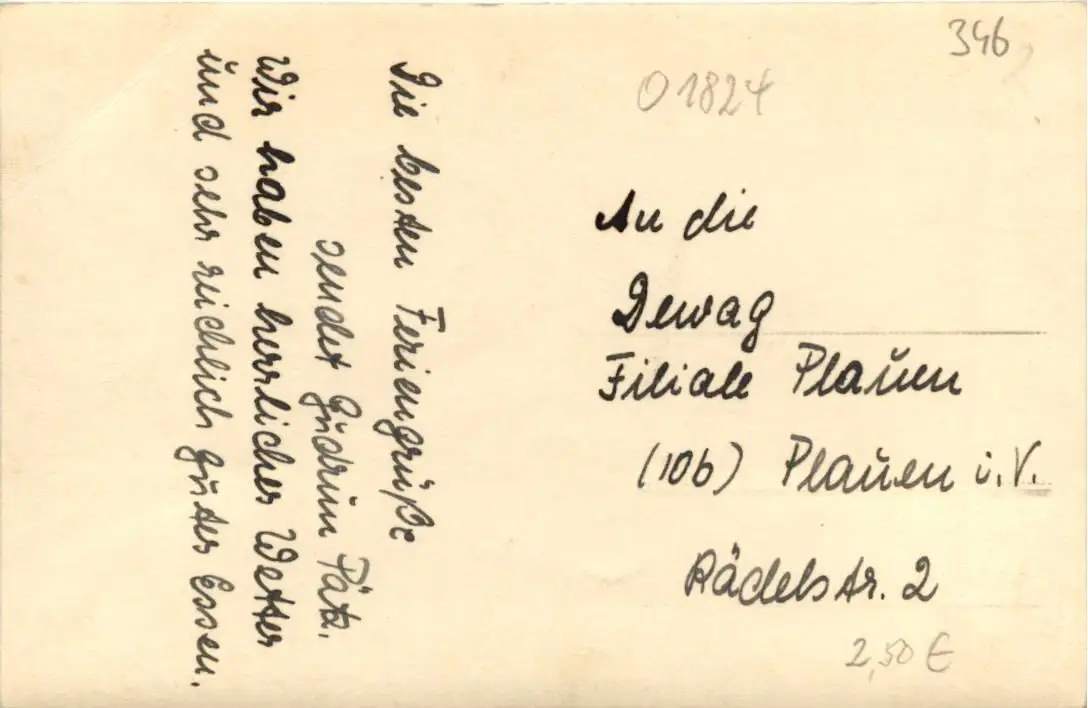 Die besten Feriengrüße
sendet Gudrun Pätz.
Wir haben herrliches Wetter
und sehr reichlich gutes Essen.
346
O 1824
An die
Dewag
Filiale Plauen
(10b) Plauen i. V.
Rädelstr. 2
2,50 €